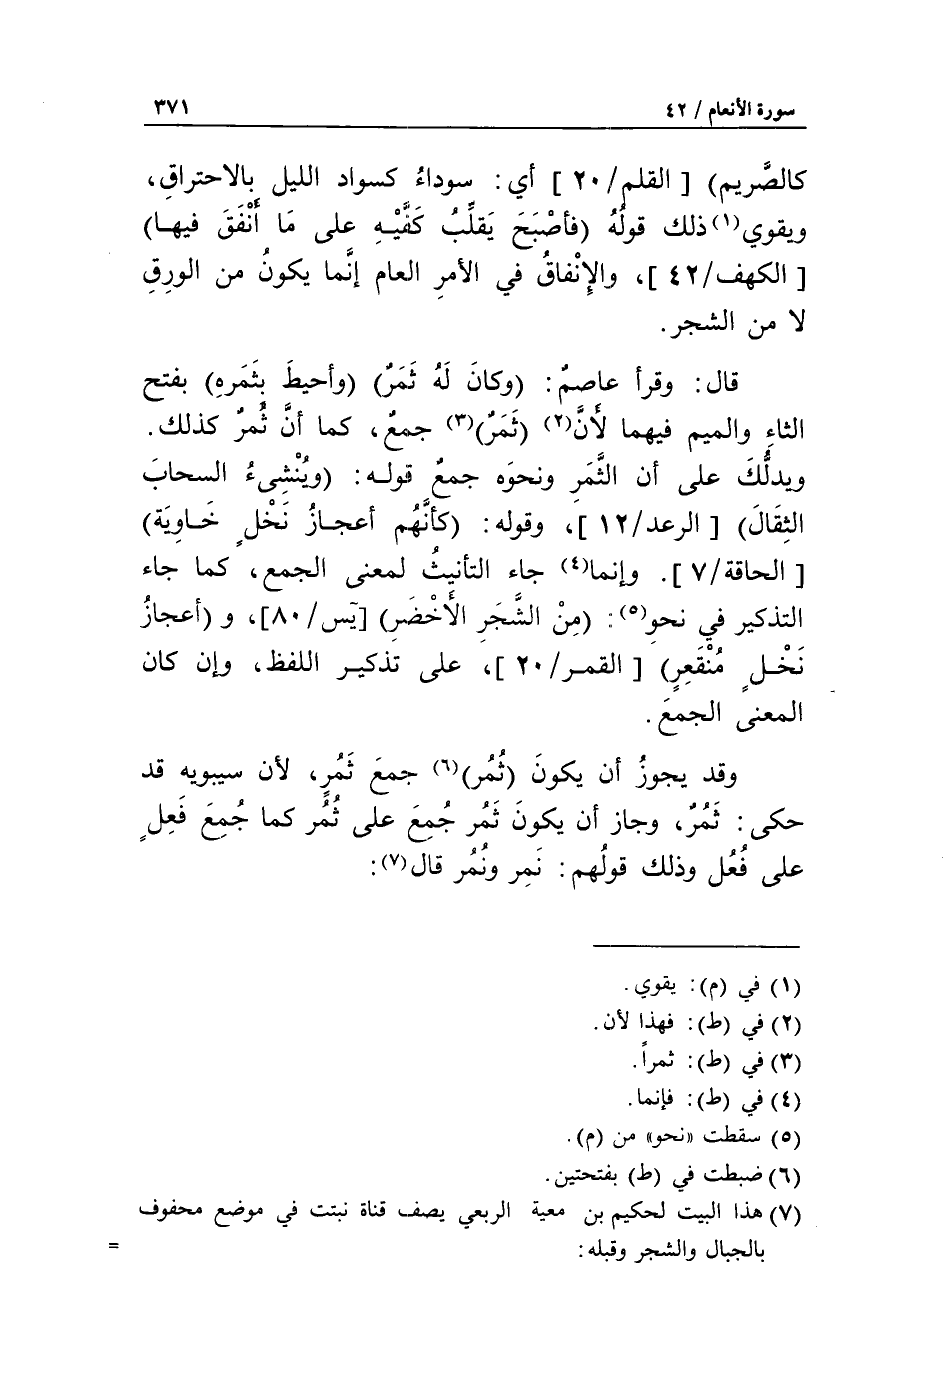 سورة الأنعام / ٤٢ ٣٧١
كالصَّريم) [ القلم/ ٢٠ ] أي: سوداءُ كسواد الليل بالاحتراقِ،
ويقوي(١) ذلك قولُهُ (فأصْبَحَ يَقلِّبُ كَفَّيْهِ على مَا أَنْفَقَ فيهـا)
[ الكهف/ ٤٢ ]، والإنْفاقُ في الأمرِ العام إنَّما يكونُ من الورِقِ
لا من الشجر.
قال: وقرأ عاصمٌ: (وكانَ لَهُ ثَمَرٌ) (وأحيطَ بِثَمَرِهِ) بفتح
الثاءِ والميم فيهما لأَنَّ(٢) (ثَمَرٌ)(٣) جمعٌ، كما أنَّ ثُمرٌ كذلك.
ويدلُّكَ على أن الثَّمَرِ ونحوَه جمعٌ قولـه: (ويُنْشِىءُ السحابَ
الثِقَالَ) [ الرعد/ ١٢ ]، وقوله: (كأنَّهُم أعجـازُ نَخْلٍ خَـاوِيَة)
[ الحاقة/ ٧ ]. وإنما(٤) جاء التأنيثُ لمعنى الجمع، كما جاء
التذكير في نحوِ(٥): (مِنْ الشَّجَرِ الأَخْضَرِ) [يَس/ ٨٠]، و (أعجازُ
نَخْلٍ مُنْقَعِرٍ) [ القمـر/ ٢٠ ]، على تذكيـر اللفظ، وإن كان
المعنى الجمعَ.
وقد يجوزُ أن يكونَ (ثُمُر)(٦) جمعَ ثَمُرٍ، لأن سيبويه قد
حكى: ثَمُرٌ، وجاز أن يكونَ ثَمُر جُمعَ على ثُمُر كما جُمِعَ فَعِلٍ
على فُعُل وذلك قولُهم: نَمِر ونُمُر قال(٧):
(١) في (م): يقوي.
(٢) في (ط): فهذا لأن.
(٣) في (ط): ثمراً.
(٤) في (ط): فإنما.
(٥) سقطت «نحو» من (م).
(٦) ضبطت في (ط) بفتحتين.
(٧) هذا البيت لحكيم بن معية الربعي يصف قناة نبتت في موضع محفوف
بالجبال والشجر وقبله: =